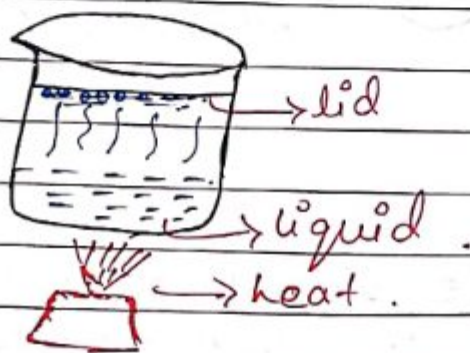 → lid
→ liquid.
→ heat.